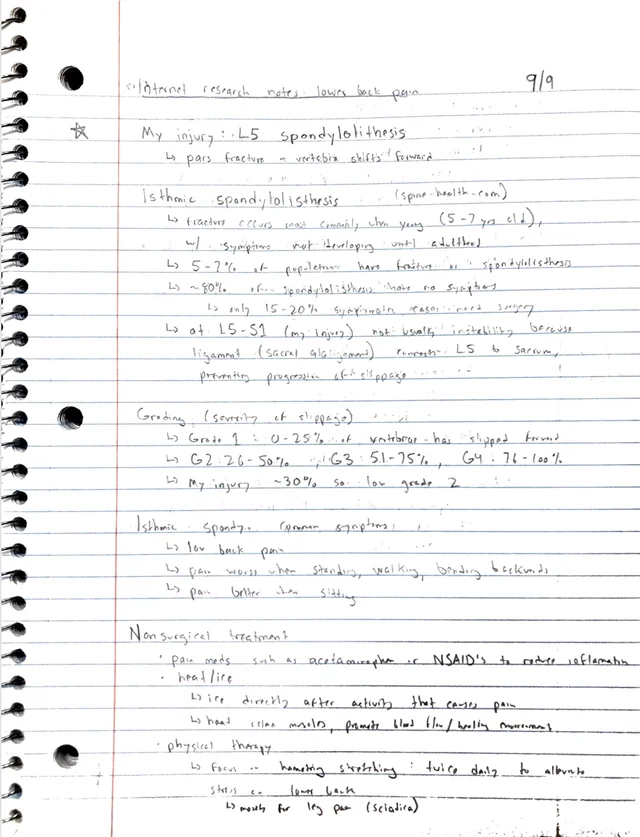 Internet research notes lower back pain 9/9
☆ My injury: L5 spondylolithesis
↳ pars fracture → vertebra shifts forward
Isthmic spondylolisthesis (spine-health.com)
↳ fracture occurs most commonly when young (5-7 yrs old),
w/ symptoms not developing until adulthood
↳ 5-7% of population have fracture or spondylolisthesis
↳ ~80% of spondylolisthesis have no symptoms
↳ only 15-20% symptomatic cases need surgery
↳ at L5-S1 (my injury) not usually instability because
ligament (sacral ala ligament) connects L5 to sacrum,
preventing progression of slippage
Grading (severity of slippage)
↳ Grade 1: 0-25% of vertebrae has slipped forward
↳ G2: 26-50%, G3: 51-75%, G4: 76-100%
↳ My injury: ~30% so low grade 2
Isthmic spondy. common symptoms:
↳ low back pain
↳ pain worse when standing, walking, bending backwards
↳ pain better when sitting
Nonsurgical treatment
· pain meds such as acetaminophen or NSAID's to reduce inflammation
· heat/ice
↳ ice directly after activity that causes pain
↳ heat relax muscles, promote blood flow/healing environment
· physical therapy
↳ Focus on hamstring stretching: twice daily to alleviate
stress on lower back
↳ mostly for leg pain (sciatica)